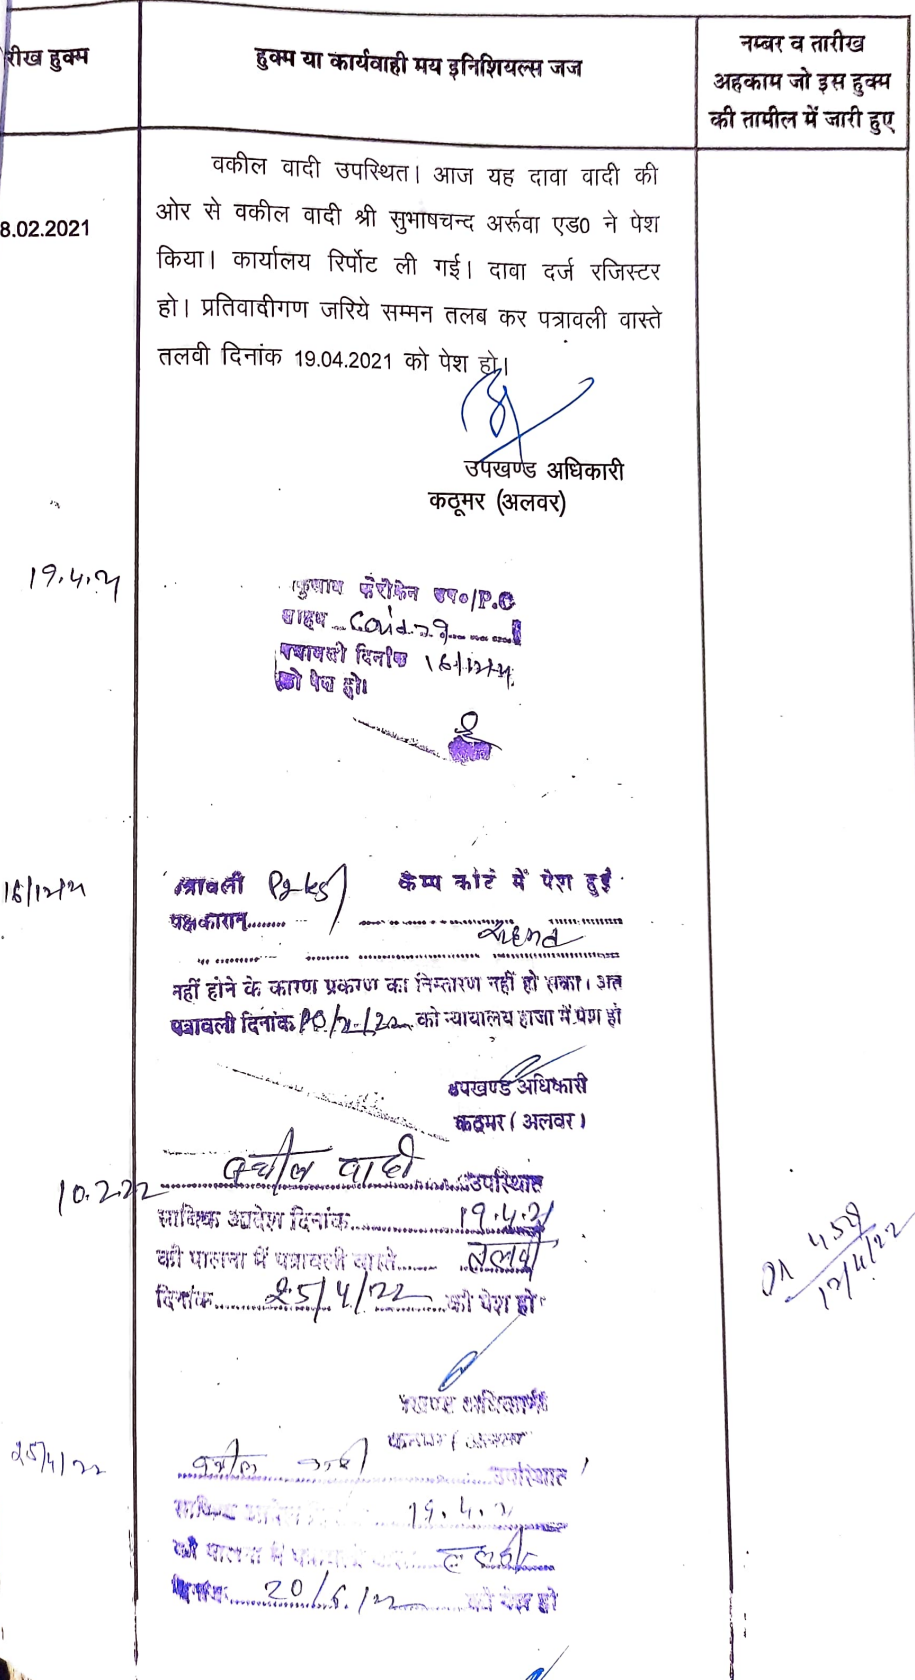 रीख हुक्म
हुक्म या कार्यवाही मय इनिशियल्स जज
नम्बर व तारीख
अहकाम जो इस हुक्म
की तामील में जारी हुए
8.02.2021
वकील वादी उपस्थित। आज यह दावा वादी की
ओर से वकील वादी श्री सुभाषचन्द अर्रूवा एड0 ने पेश
किया। कार्यालय रिर्पोट ली गई। दावा दर्ज रजिस्टर
हो। प्रतिवादीगण जरिये सम्मन तलब कर पत्रावली वास्ते
तलवी दिनांक 19.04.2021 को पेश हो।
उपखण्ड अधिकारी
कठूमर (अलवर)
19.4.21
P.O
Covid-19
पत्रावली दिनांक 16/12/21
को पेश हो।
16/12/21
त्रावली कैम्प कोर्ट में पेश हुई
पक्षकारान........
नहीं होने के कारण प्रकरण का निस्तारण नहीं हो सका। अत
पत्रावली दिनांक 10/2/22 को न्यायालय हाजा में पेश हो
उपखण्ड अधिकारी
कठूमर (अलवर)
10.2.22
वकील वादी उपस्थित
साबिक आदेश दिनांक 19.4.21
की पालना में पत्रावली वास्ते तलवी
दिनांक 25/4/22 को पेश हो
12/4/22
25/4/22
वकील वादी उपस्थित
साबिक आदेश 19.4.21
की पालना में तलवी
दिनांक 20/6/22 को पेश हो